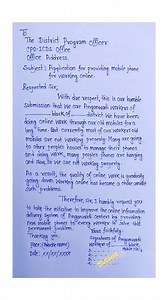 To
The District Program Officer
CPO-ICDS Office
Office Address.
Subject: Application for providing mobile phone
for working online.
Respected Sir,
With due respect, this is our humble
submission that we are Anganwadi workers of
block, of district. We have been
doing online work through our old mobiles for a
long time. But currently most of our workers old
mobiles are not working properly. Many are going
to other people's houses to manage their phones
and doing work, many people's phones are hanging
and due to, we are not able to work.
As a result, the quality of online work is gradually
going down. Working online has become a
such problems.
Therefore, Sir, I humbly request you
to take the initiative to improve the online information
delivery system of Anganwadi centers by providing
new mobile phones to every worker to solve this
government problem.
Thanking you.
Place: (block name)
Date: xx/xx/xxxx
Yours faithfully,
Signatures of Anganwadi
workers of block.
1.
2.
3.